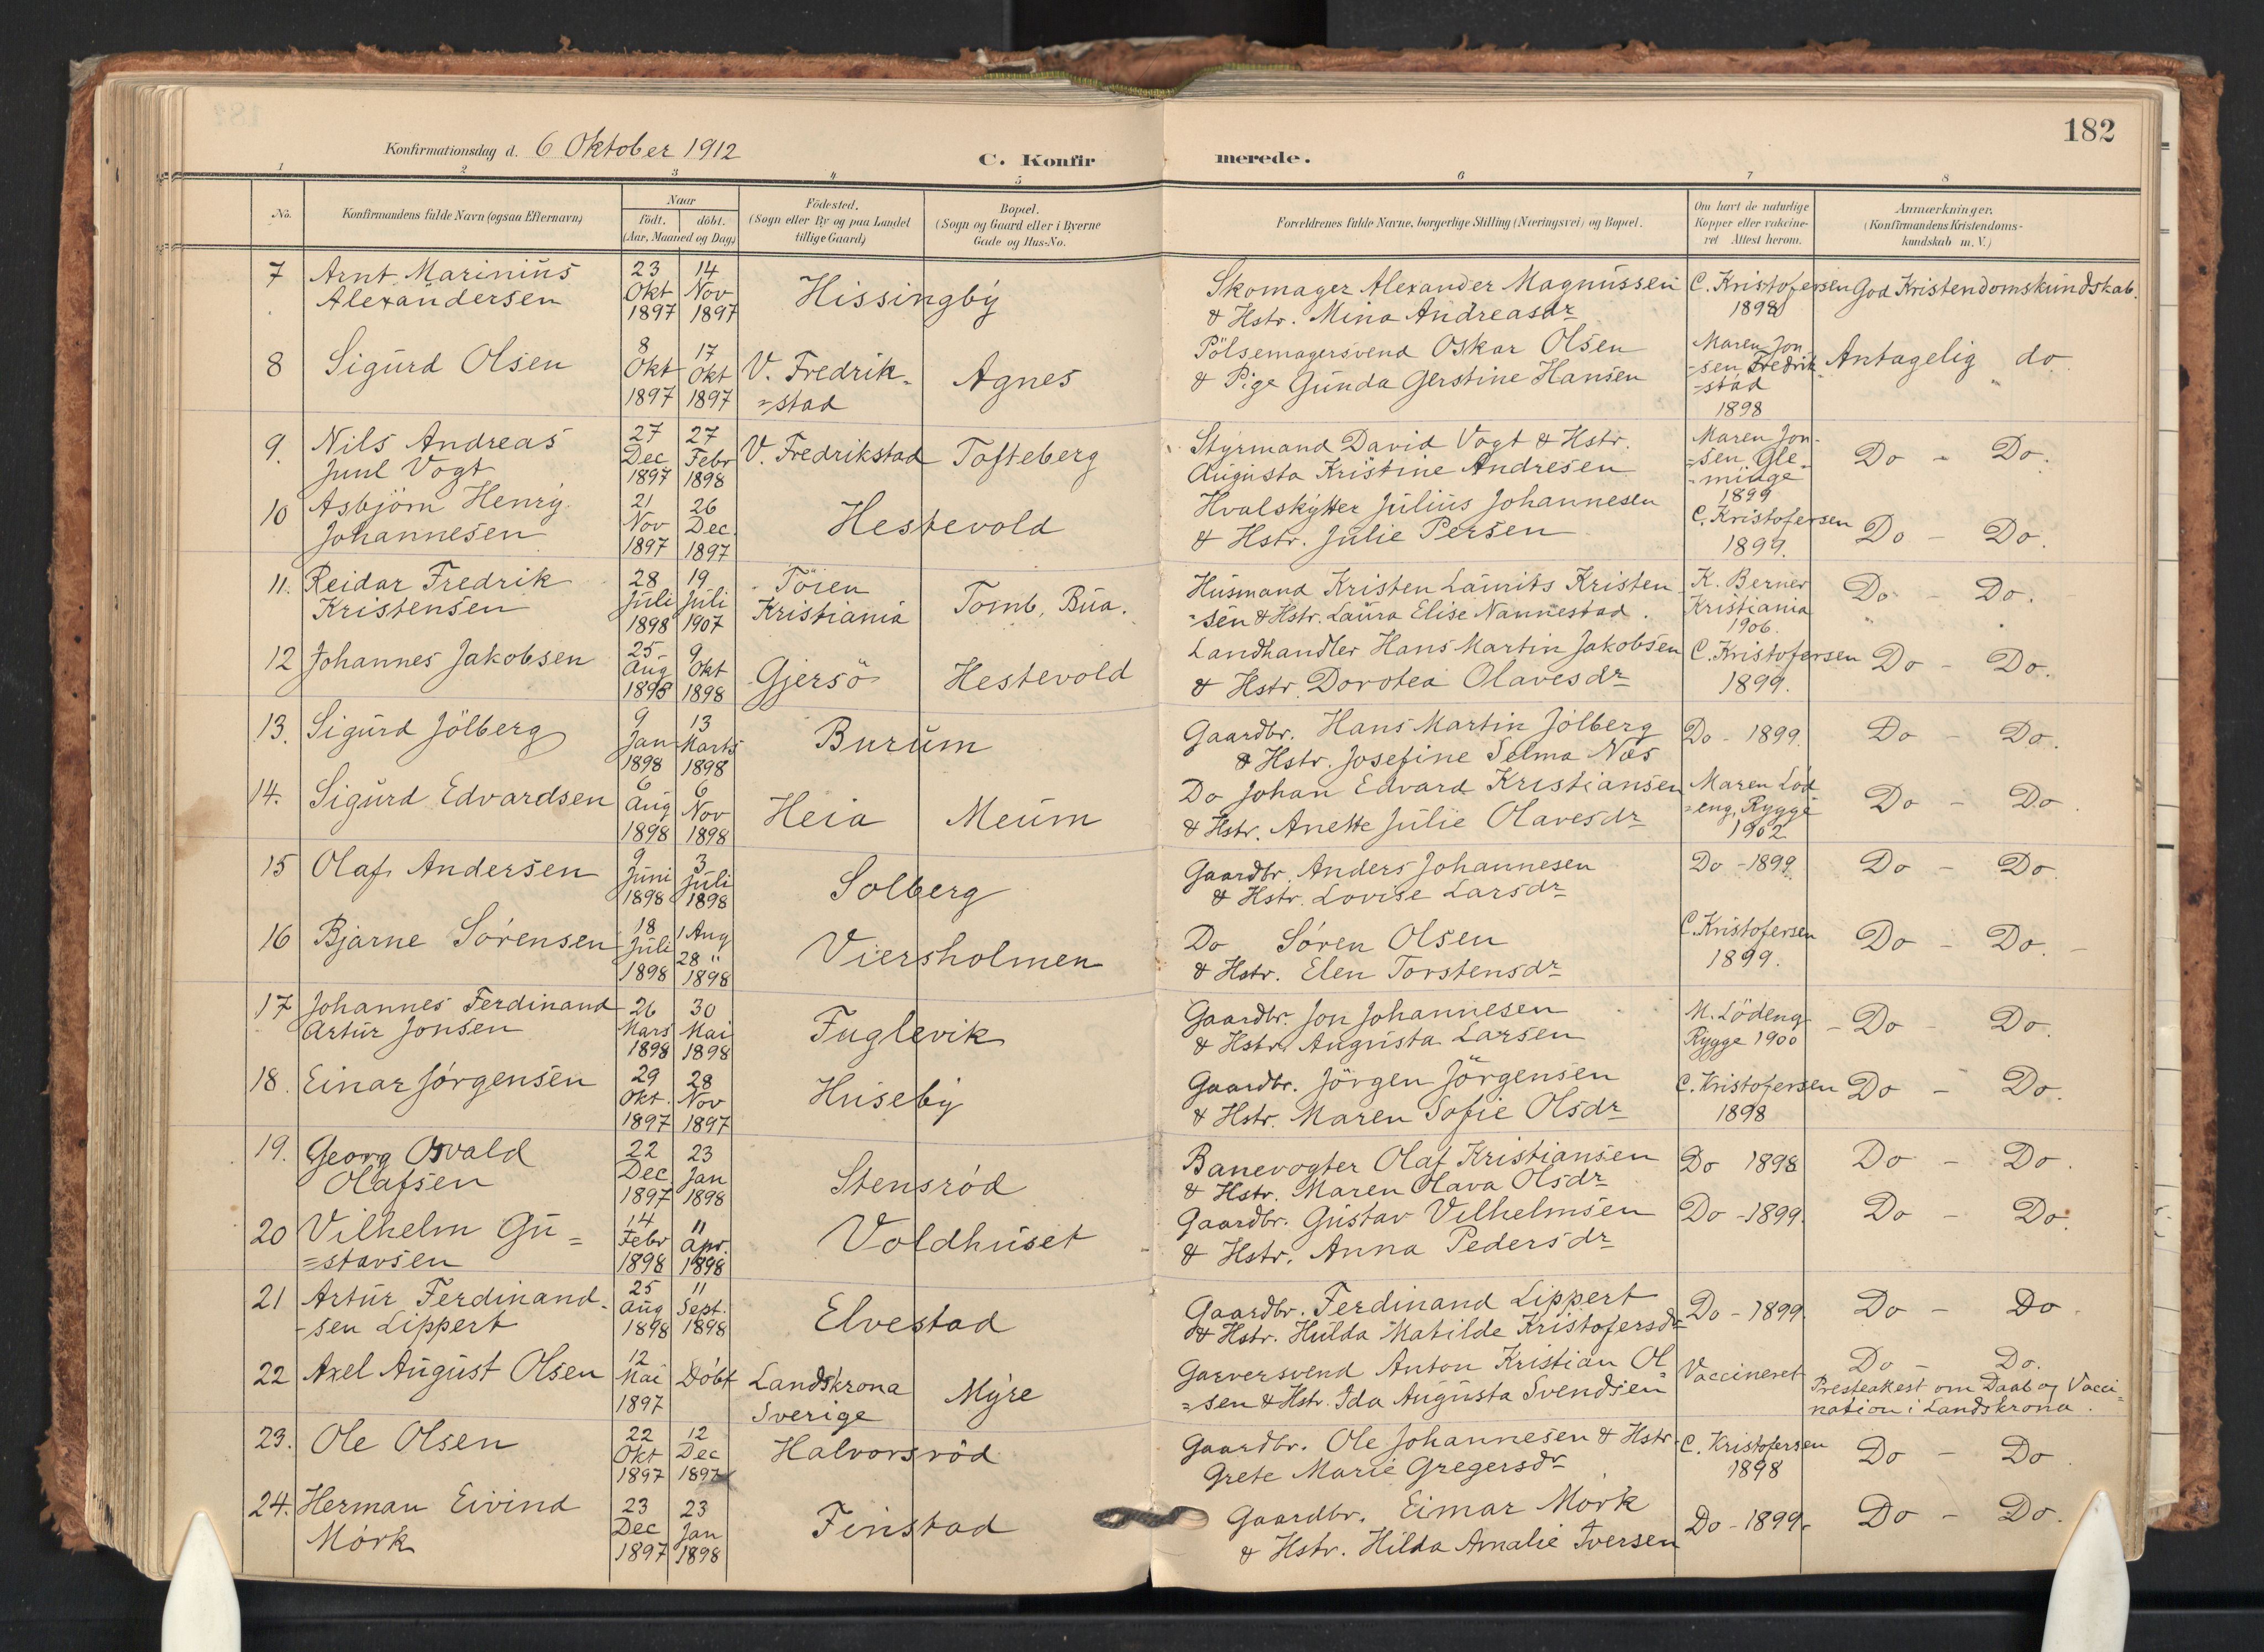 182
Konfirmationsdag d. 6 Oktober 1912
C. Konfirmerede.
1 2 3 4 5 6 7 8
No.
Konfirmandens fulde Navn (ogsaa Efternavn)
Naar
födt. döbt.
(Aar, Maaned og Dag)
Födested.
(Sogn eller By og paa Landet
tillige Gaard)
Bopæl.
(Sogn og Gaard eller i Byerne
Gade og Hus-No.
Forældrenes fulde Navne, borgerlige Stilling (Næringsvei) og Bopæl.
Om havt de naturlige
Kopper eller vakcine-
ret Attest herom.
Anmærkninger.
(Konfirmandens Kristendoms-
kundskab m. V.)
7 Arnt Marinius 23 14 Hissingby Skomager Alexander Magnussen C. Kristofersen God Kristendomskundskab.
Alexandersen Okt Nov & Hstr. Mina Andreasdr 1898
1897 1897
8 Sigurd Olsen 8 17 V. Fredrik- Agnes Pölsemagersvend Oskar Olsen Maren Jon- Antagelig do
Okt Okt =stad & Pige Gunda Gerstine Hansen -sen Fredrik-
1897 1897 -stad
1898
9. Nils Andreas 27 27 V. Fredrikstad Tofteberg Styrmand David Vogt & Hstr. Maren Jon- Do - Do.
Juul Vogt Dec Febr Augusta Kristine Andresen =sen Gle-
1897 1898 -minge
1899
10 Asbjörn Henry 21 26 Hestevold Hvalskytter Julius Johannesen C. Kristofersen Do - Do.
Johannesen Nov Dec. & Hstr. Julie Persen 1899.
1897 1897
11. Reidar Fredrik 28 19 Töien Tomb, Bua. Husmand Kristen Laurits Kristen K. Berner Do - Do.
Kristensen Juli Juli Kristiania -sen & Hstr. Laura Elise Nannestad. Kristiania
1898 1907 1906.
12 Johannes Jakobsen 25 9 Gjersö Hestevold Landhandler Hans Martin Jakobsen C. Kristofersen Do - Do.
Aug Okt & Hstr. Dorotea Olavesdr 1899.
1898 1898
13. Sigurd Jölberg 9 13 Burum Gaardbr. Hans Martin Jölberg Do - 1899. Do - Do.
Jan Marts & Hstr. Josefine Selma Næs
1898 1898
14. Sigurd Edvardsen 6 6 Heia Meum Do Johan Edvard Kristiansen Maren Löd Do - Do.
Aug Nov & Hstr. Anette Julie Olavesdr =eng, Rygge
1898 1898 1902
15 Olaf Andersen 9 3 Solberg Gaardbr. Anders Johannesen Do - 1899 Do - Do.
Juni Juli & Hstr. Lovise Larsdr
1898 1898
16 Bjarne Sörensen 18 1 Aug Viersholmen Do Sören Olsen C. Kristofersen Do - Do. -
Juli 28 " & Hstr. Elen Torstensdr 1899.
1898 1898
17 Johannes Ferdinand 26 30 Fuglevik Gaardbr. Jon Johannesen M. Lödeng - Do - Do.
Artur Jonsen Mars Mai & Hstr. Augusta Larsen Rygge 1900
1898 1898
18. Einar Jörgensen 29 28 Huseby Gaardbr. Jörgen Jörgensen C. Kristofersen Do - Do.
Okt. Nov & Hstr. Maren Sofie Olsdr 1898
1897 1897
19. Georg Osvald 22 23 Stensröd Banevogter Olaf Kristiansen Do 1898 Do - Do.
Olafsen Dec Jan & Hstr. Maren Olava Olsdr
1897 1898
20 Vilhelm Gu= 14 11 Voldhuset Gaardbr. Gustav Vilhelmsen Do - 1899. Do - Do.
=stavsen Febr Apr. & Hstr. Anna Pedersdr
1898 1898
21 Artur Ferdinand- 25 11 Elvestad Gaardbr. Ferdinand Lippert Do - 1899. Do - Do.
-sen Lippert Aug Sept. & Hstr. Hulda Matilde Kristofersdr
1898 1898
22 Axel August Olsen 12 Döbt Landskrona Myre Garversvend Anton Kristian Ol Vaccineret Do - Do.
Mai Sverige =sen & Hstr. Ida Augusta Svendsen Presteattest om Daab og Vacci=
1897 nation i Landskrona.
23. Ole Olsen 22 12 Halvorsröd Gaardbr. Ole Johannesen & Hstr. C. Kristofersen Do - Do.
Okt Dec Grete Marie Gregersdr 1898
1897 1897
24. Herman Eivind 23 23 Finstad Gaardbr. Eimar Mörk Do - 1899. Do - Do.
Mörk Dec Jan & Hstr. Hilda Amalie Iversen
1897 1898